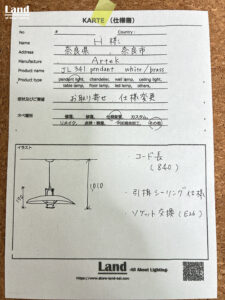 Land
KARTE (仕様書)
No #
Country
Name H 様
Address 奈良県 奈良市
Manufacture Artek
Product name JL341 pendant white/brass
Product type pendant light, chandelier, wall lamp, ceiling light,
table lamp, floor lamp, led lamp, others,
お取り寄せ 仕様変更
イラスト
コード長
(840)
1010
・引掛シーリング仕様
・ソケット交換 (E26)
Land -All About Lighting-
https://www.store-land-net.com